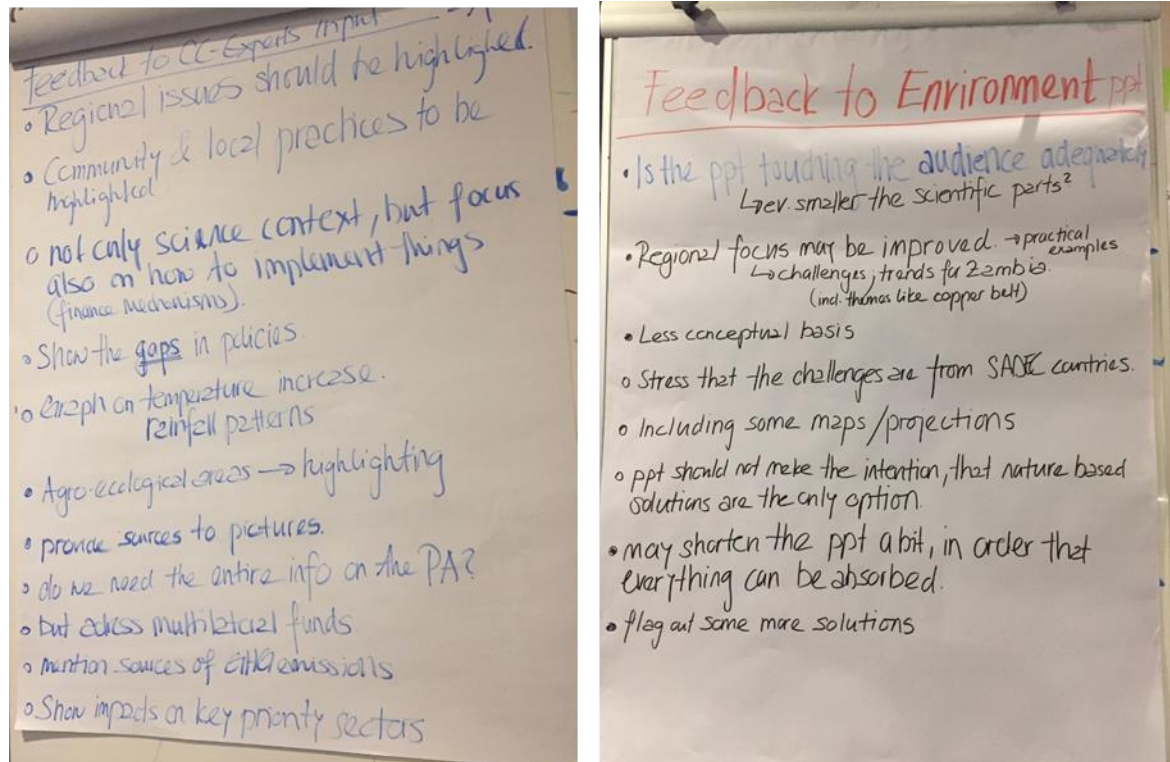 Feedback to CC-Experts Input
• Regional issues should be highlighed.
• Community & local practices to be
highlighted
o not only science context, but focus
also on how to implement things
(finance mechanisms).
o Show the gaps in policies.
o Graph on temperature increase.
rainfall patterns
• Agro-ecological areas → highlighting
• provide sources to pictures.
o do we need the entire info on the PA?
o but adress multilateral funds
o mention sources of GHG emissions
o Show impacts on key priority sectors
Feedback to Environment ppt
• Is the ppt touching the audience adequately
↳ ev. smaller the scientific parts²
• Regional focus may be improved. → practical
examples
↳ challenges, trends for Zambia.
(incl. themes like copper belt)
• Less conceptual basis
o Stress that the challenges are from SADEC countries.
o Including some maps/projections
o ppt should not make the intention, that nature based
solutions are the only option.
• may shorten the ppt a bit, in order that
everything can be absorbed.
• flag out some more solutions